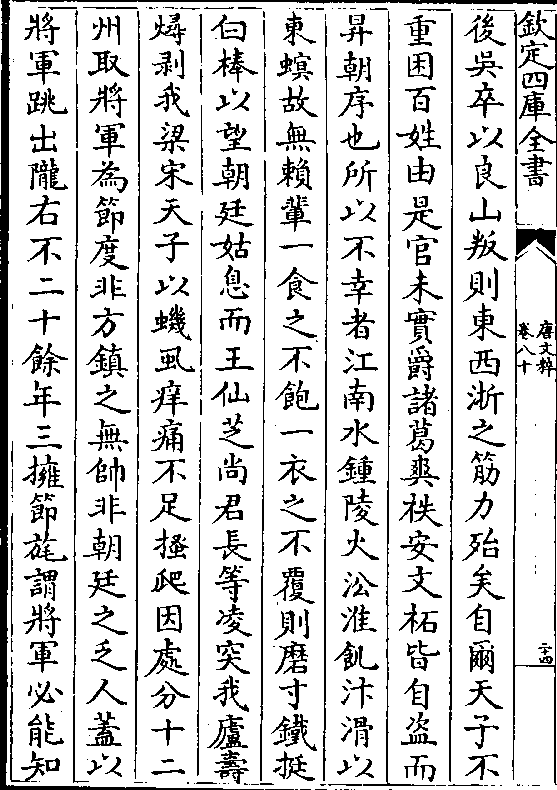 欽定四庫全書
唐文粹
卷八十
二十四
後吳卒以良山叛則東西浙之筋力殆矣自爾天子不
重困百姓由是官未實爵諸葛爽秩安文柘皆自盜而
昇朝序也所以不幸者江南水鍾陵火沿淮飢汴滑以
東螟故無賴輩一食之不飽一衣之不覆則磨寸鐵挺
白棒以望朝廷姑息而王仙芝尚君長等凌突我廬壽
燖剥我梁宋天子以蟣虱痒痛不足搔爬因處分十二
州取將軍為節度非方鎮之無帥非朝廷之乏人蓋以
將軍跳出隴右不二十餘年三擁節旄謂將軍必能知